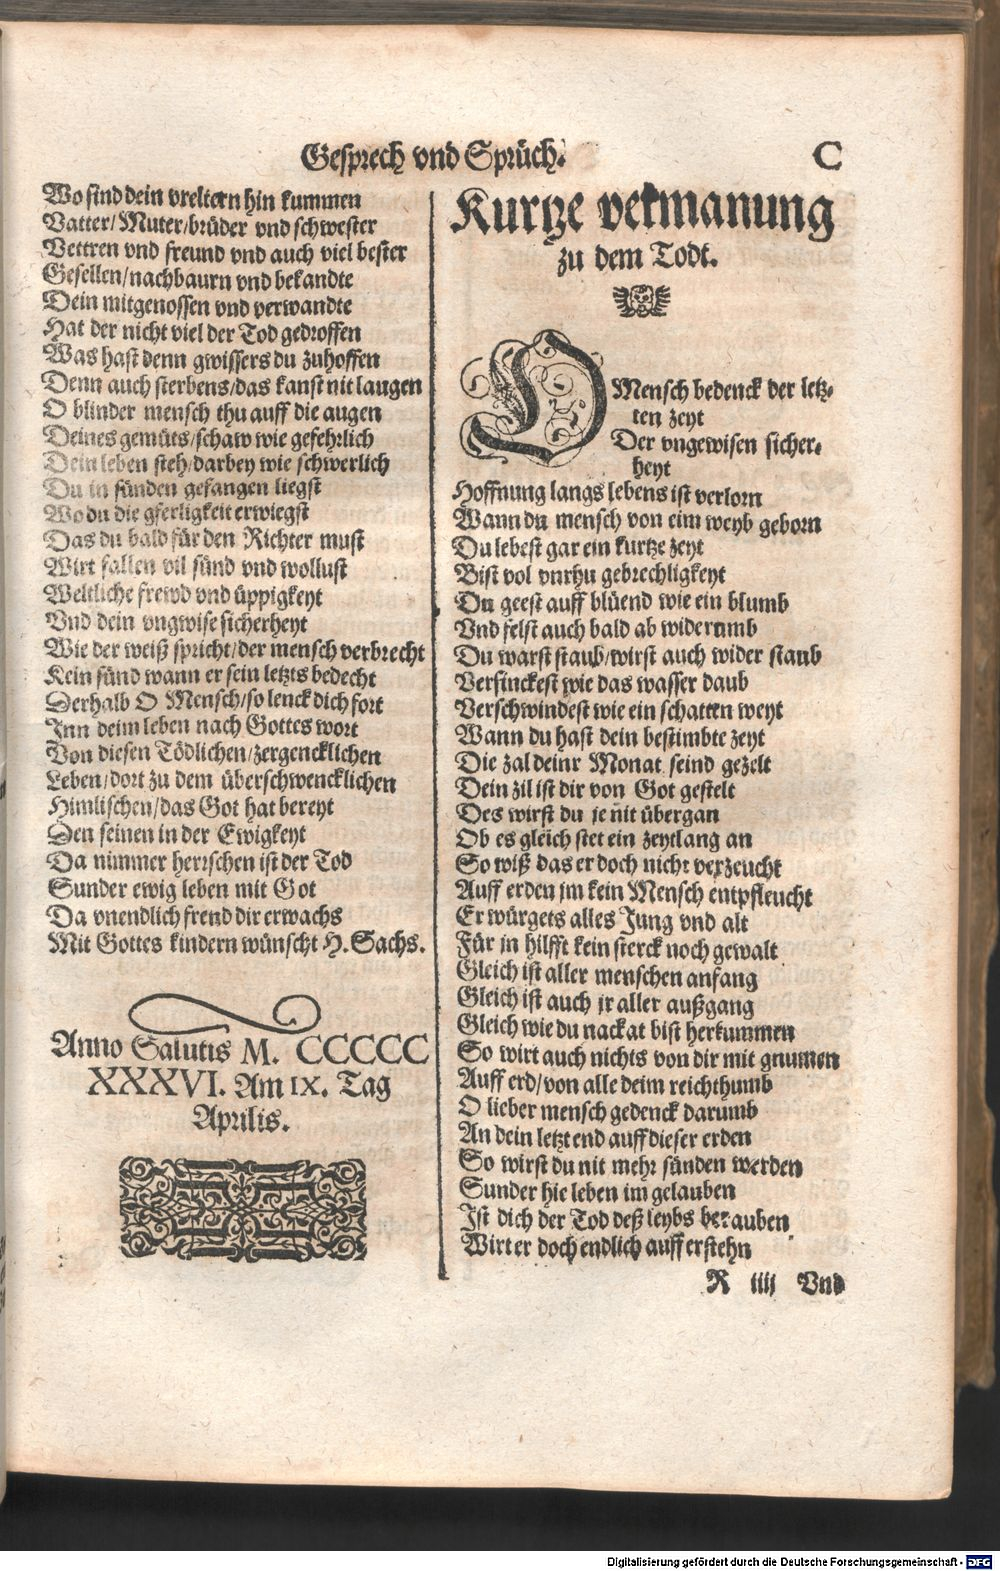 Gesprech vnd Sprüch. C
Wo sind dein vreltern hin kummen
Vatter/Muter/brüder vnd schwester
Vettren vnd freund vnd auch viel bester
Gesellen/nachbaurn vnd bekandte
Dein mitgenossen vnd verwandte
Hat der nicht viel der Tod gedroffen
Was hast denn gwissers du zuhoffen
Denn auch sterbens/das kanst nit laugen
O blinder mensch thu auff die augen
Deines gemüts/schaw wie gefehrlich
Dein leben steh/darbey wie schwerlich
Du in sünden gefangen liegst
Wo du die gferligkeit erwiegst
Das du bald für den Richter must
Wirt fallen vil sünd vnd wollust
Weltliche frewd vnd üppigkeyt
Vnd dein vngwise sicherheyt
Wie der weiß spricht/der mensch verbrecht
Kein sünd wann er sein letzts bedecht
Derhalb O Mensch/so lenck dich fort
Inn deim leben nach Gottes wort
Von diesen Tödlichen/zergencklichen
Leben/dort zu dem überschwencklichen
Himlischen/das Got hat bereyt
Den seinen in der Ewigkeyt
Da nimmer herrschen ist der Tod
Sunder ewig leben mit Got
Da vnendlich frend dir erwachs
Mit Gottes kindern wünscht H. Sachs.
Anno Salutis M. CCCCC
XXXVI. Am IX. Tag
Aprilis.
Kurtze vermanung
zu dem Todt.
O Mensch bedenck der letz-
ten zeyt
Der vngewisen sicher-
heyt
Hoffnung langs lebens ist verlorn
Wann du mensch von eim weyb geborn
Du lebest gar ein kurtze zeyt
Bist vol vnrhu gebrechligkeyt
Du geest auff blüend wie ein blumb
Vnd felst auch bald ab widerumb
Du warst staub/wirst auch wider staub
Versinckest wie das wasser daub
Verschwindest wie ein schatten weyt
Wann du hast dein bestimbte zeyt
Die zal deinr Monat seind gezelt
Dein zil ist dir von Got gestelt
Des wirst du je nit übergan
Ob es gleich stet ein zeytlang an
So wiß das er doch nicht verzeucht
Auff erden jm kein Mensch entpfleucht
Er würgets alles Jung vnd alt
Für jn hilfft kein sterck noch gewalt
Gleich ist aller menschen anfang
Gleich ist auch jr aller außgang
Gleich wie du nackat bist herkummen
So wirt auch nichts von dir mit gnumen
Auff erd/von alle deim reichthumb
O lieber mensch gedenck darumb
An dein letzt end auff dieser erden
So wirst du nit mehr sünden werden
Sunder hie leben im gelauben
Ist dich der Tod deß leybs berauben
Wirt er doch endlich auff erstehn
R iiij Vnd
Digitalisierung gefördert durch die Deutsche Forschungsgemeinschaft - DFG